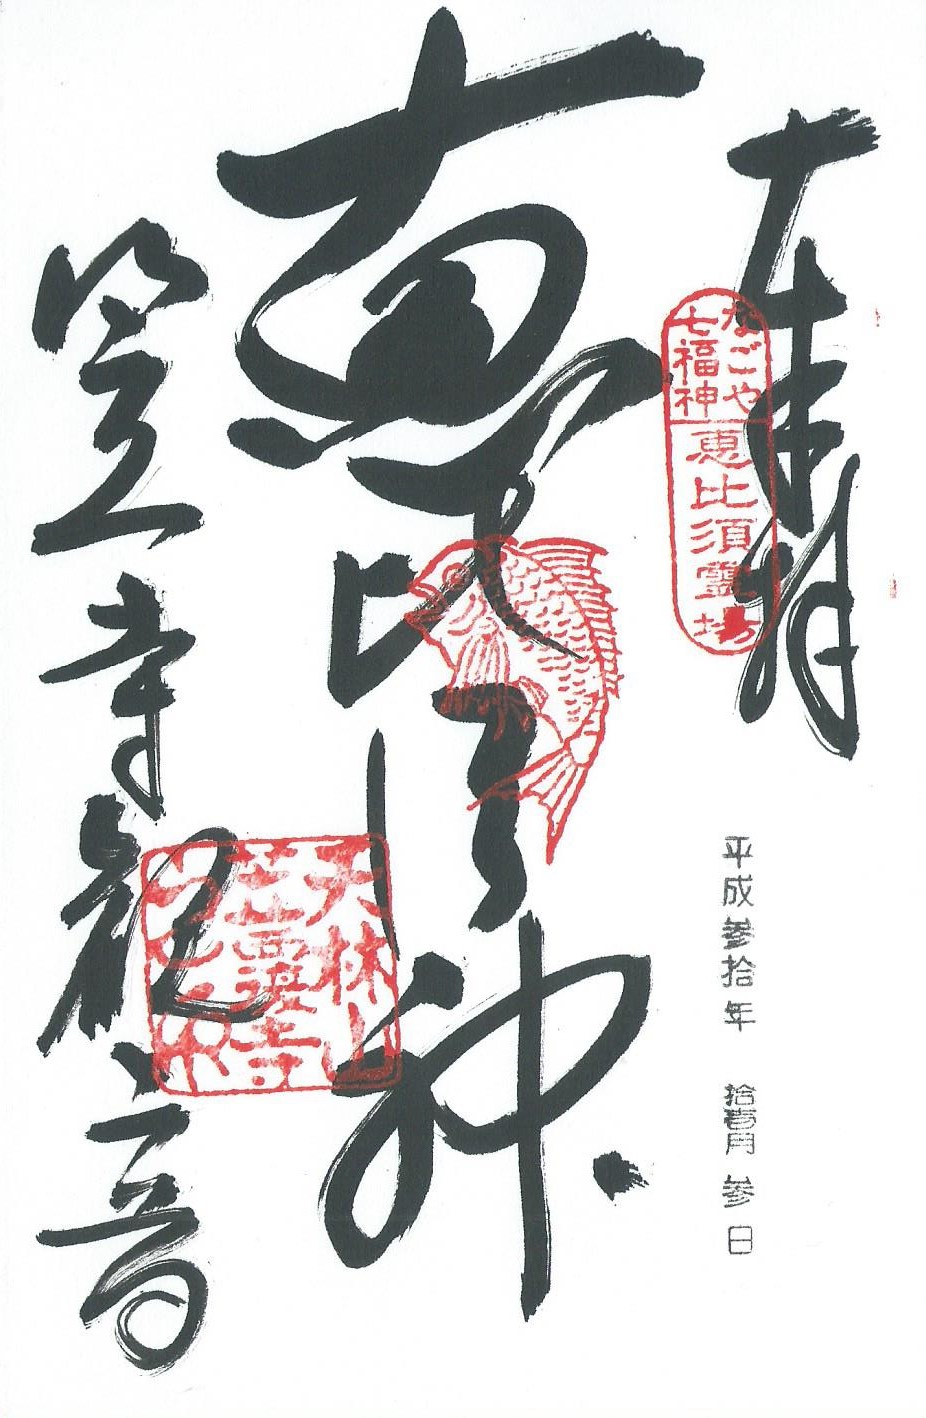 奉拝
なごや
七福神
恵比須靈場
平成参拾年 拾壹月 参日
恵比須神
天林山
笠覆寺
笠寺観音